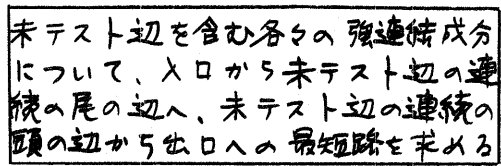 未テスト辺を含む各々の強連結成分
について、入口から未テスト辺の連
続の尾の辺へ、未テスト辺の連続の
頭の辺から出口への最短路を求める